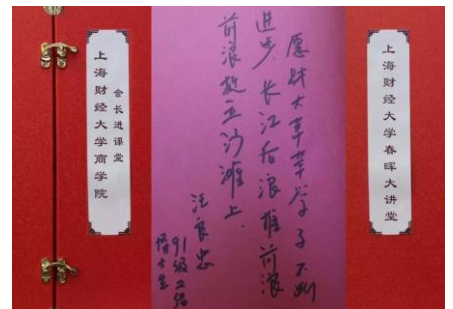 上海财经大学春晖大讲堂
愿财大莘莘学子不断
进步,长江后浪推前浪
前浪挺立沙滩上.
汪良忠
91级工经
博士生
会长进课堂
上海财经大学商学院